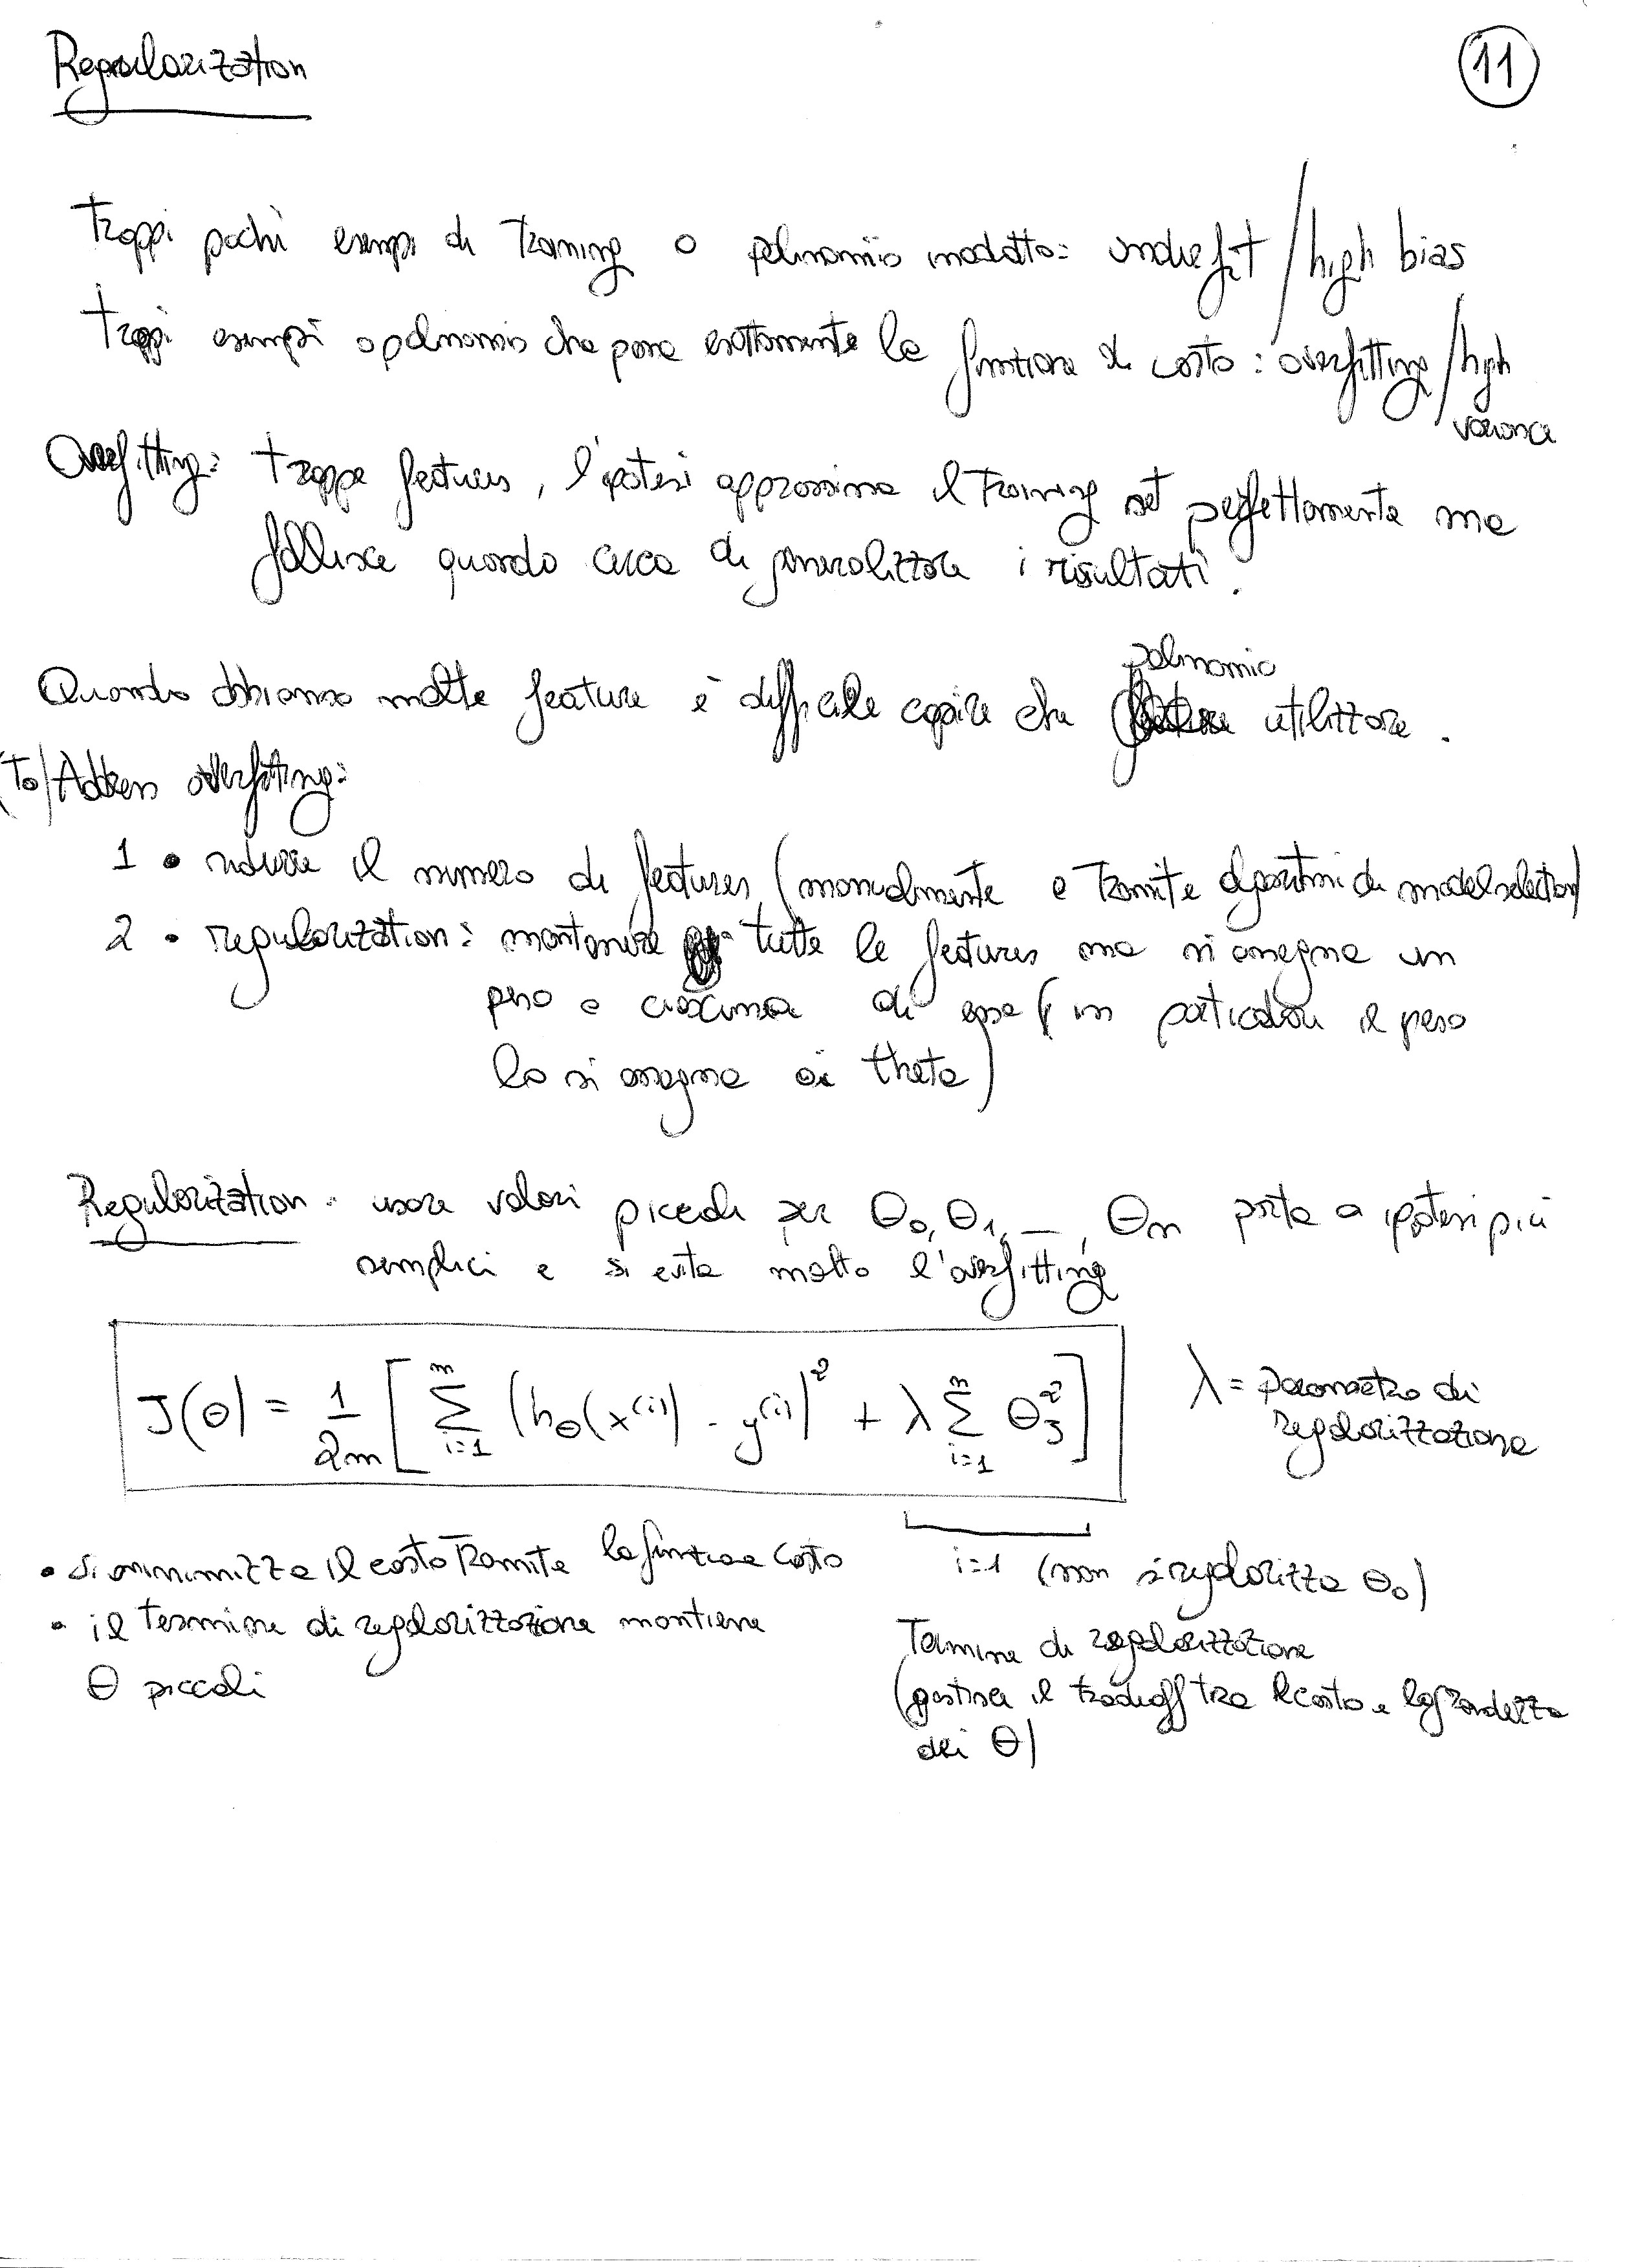 Regularization
11
Troppi pochi esempi di Training o polinomio inadatto: underfit / high bias
troppi esempi o polinomio che passa esattamente la funzione di costo: overfitting / high
varianza
Overfitting: troppe features, l'ipotesi approssima il training set perfettamente ma
fallisce quando cerca di generalizzare i risultati.
polinomio
Quando abbiamo molte feature è difficile capire che utilizzare.
(To) Address overfitting:
1 • ridurre il numero di features (manualmente o tramite algoritmi di model selection)
2 • regularization: mantenere tutte le features ma si assegna un
peso a ciascuna di esse (in particolare il peso
lo si assegna ai theta)
Regularization: usare valori piccoli per Θ₀, Θ₁, —, Θn porta a ipotesi più
semplici e si evita molto l'overfitting
J(Θ) = 1/2m [ Σ_{i=1}^{m} (hΘ(x⁽ⁱ⁾) - y⁽ⁱ⁾)² + λ Σ_{i=1}^{n} Θ_j² ]
λ = parametro di
regolarizzazione
• si minimizza il costo Tramite la funzione costo
• il termine di regolarizzazione mantiene
Θ piccoli
i=1 (non si regolarizza Θ₀)
Termine di regolarizzazione
(gestisce il tradeoff tra il costo e la grandezza
dei Θ)